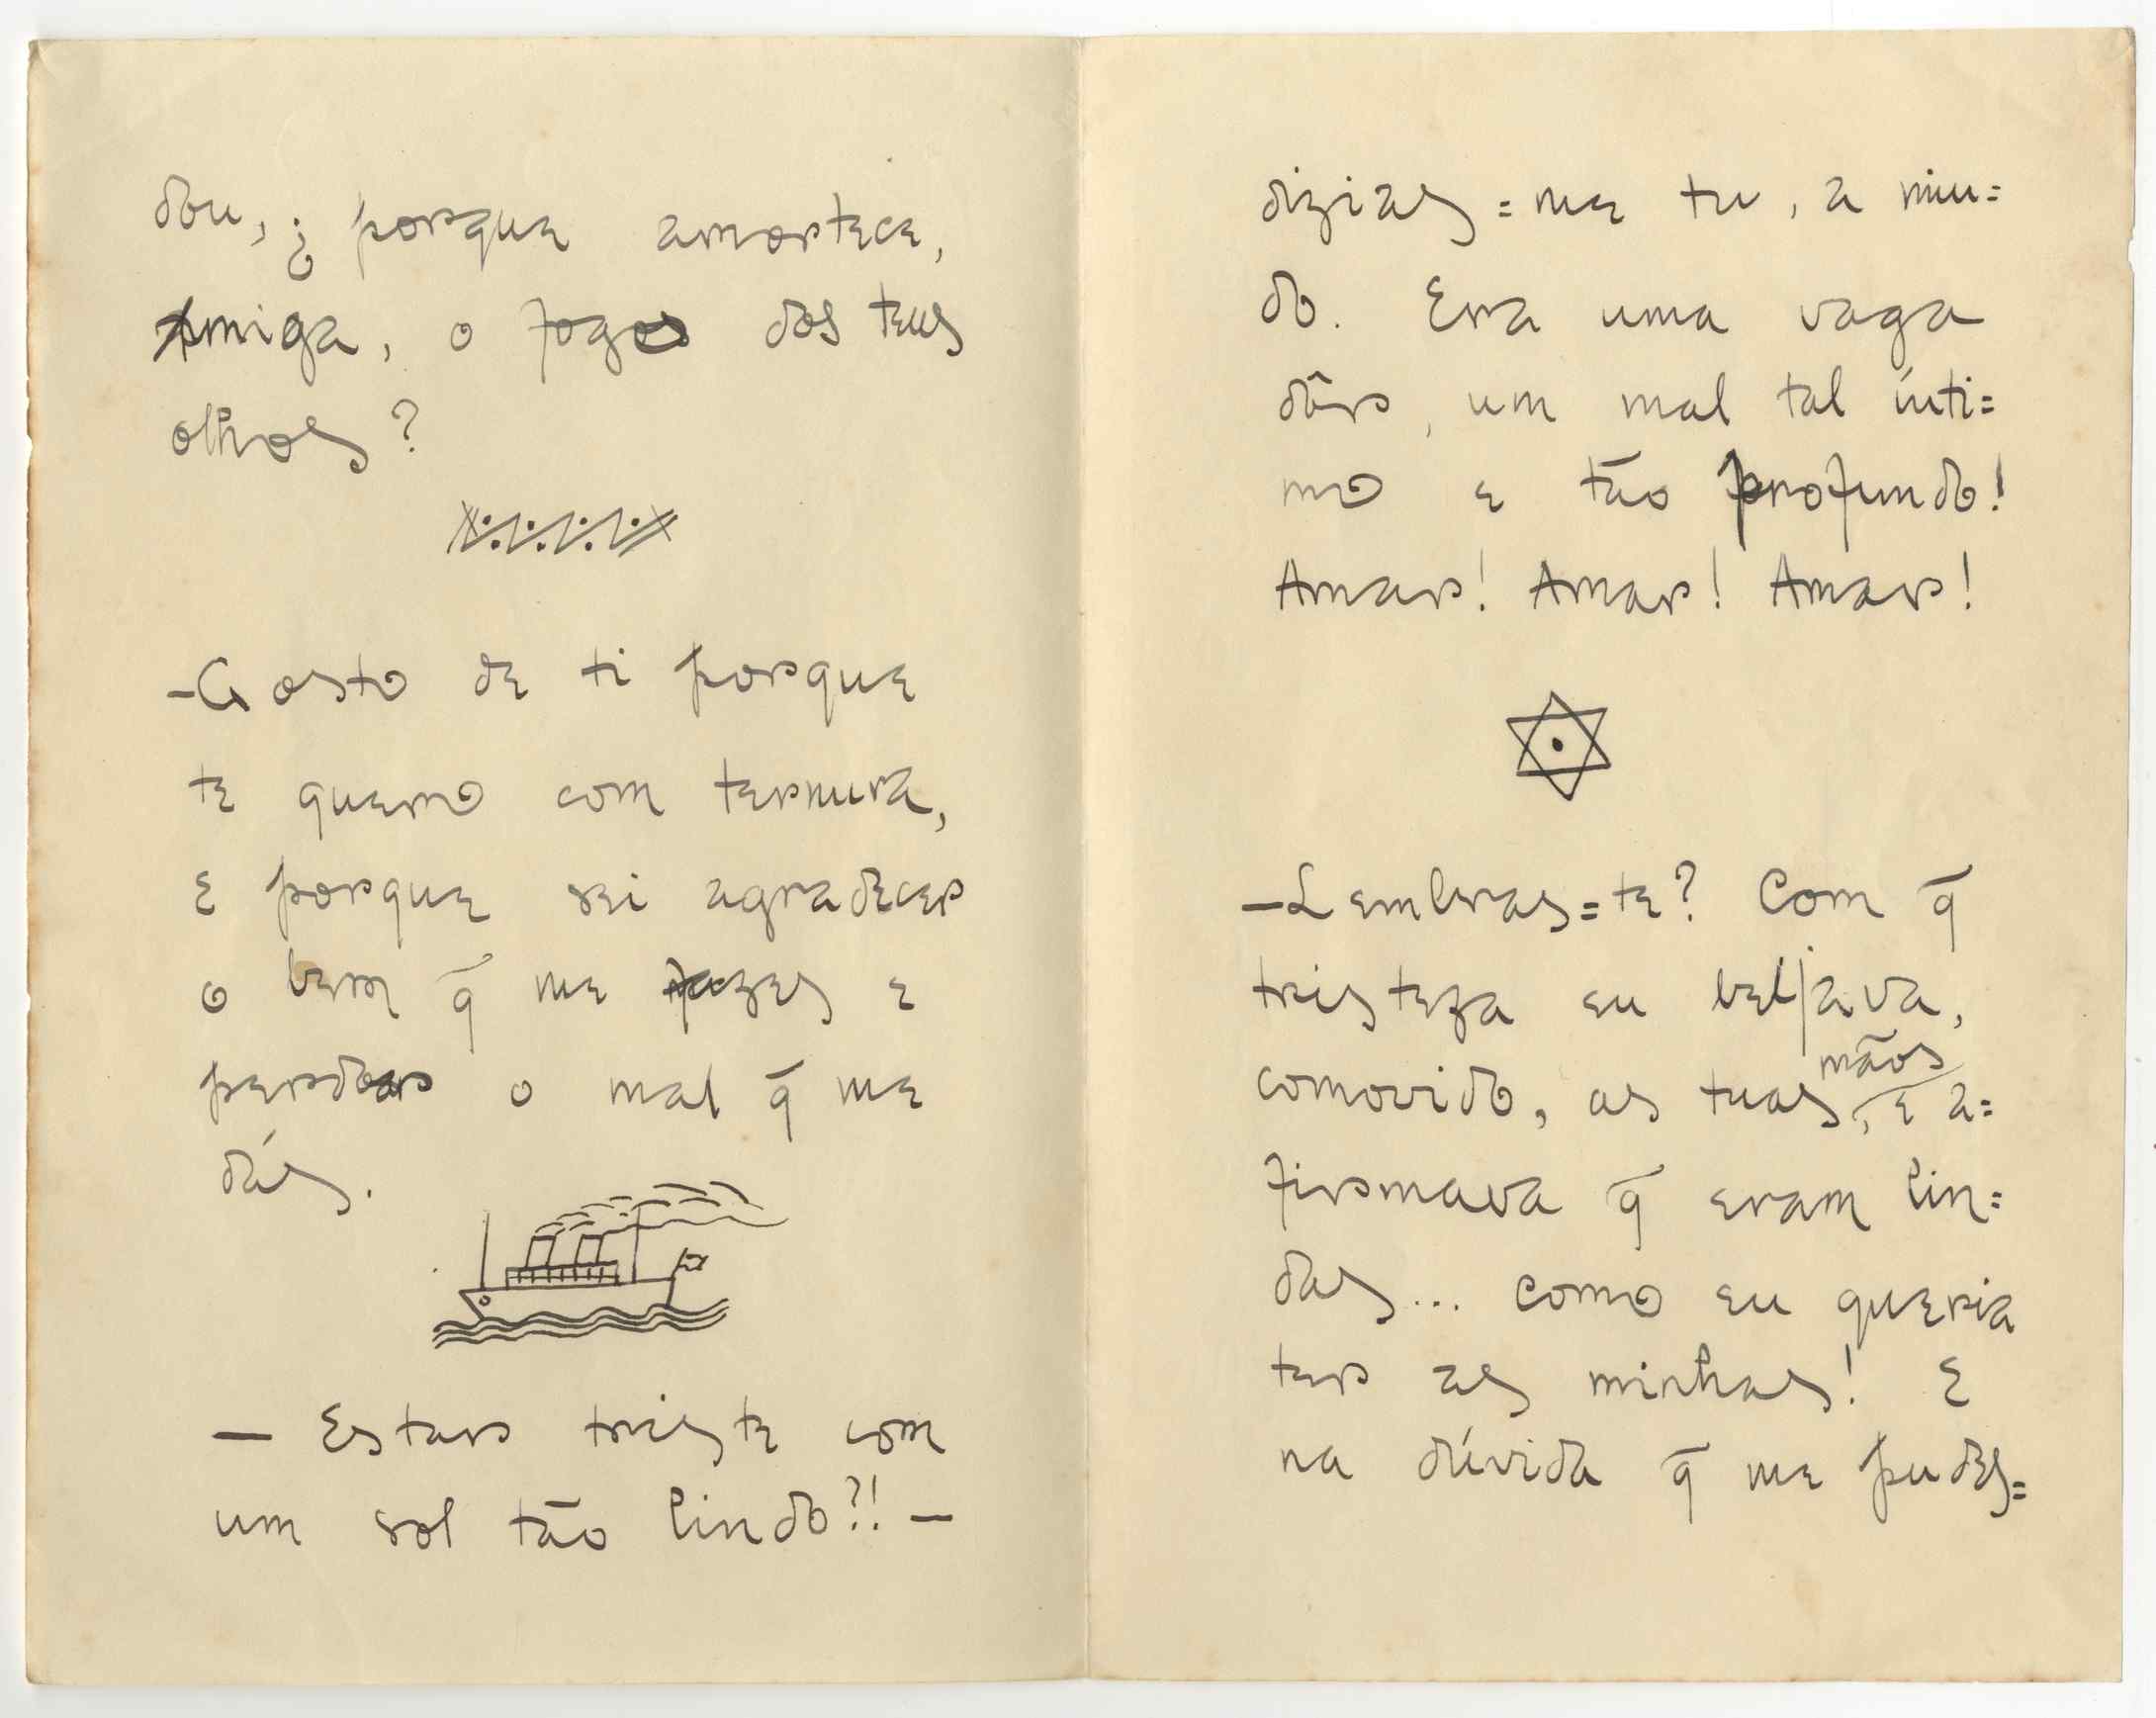 dou, ¿porque amortece,
Amiga, o fogo dos teus
olhos?
-Gosto de ti porque
te quero com ternura,
e porque sei agradecer
o bem q̄ me fazes e
perdoar o mal q̄ me
dás.
— Estar triste com
um sol tão lindo?! —
dizias=me tu, a miu=
do. Era uma vaga
dôr, um mal tal ínti=
mo e tão profundo!
Amar! Amar! Amar!
—Lembras=te? Com q̄
tristeza eu beijava,
comovido, as tuas mãos, e a=
firmava q̄ eram lin=
das... como eu queria
ter as minhas! E
na dúvida q̄ me pudes=